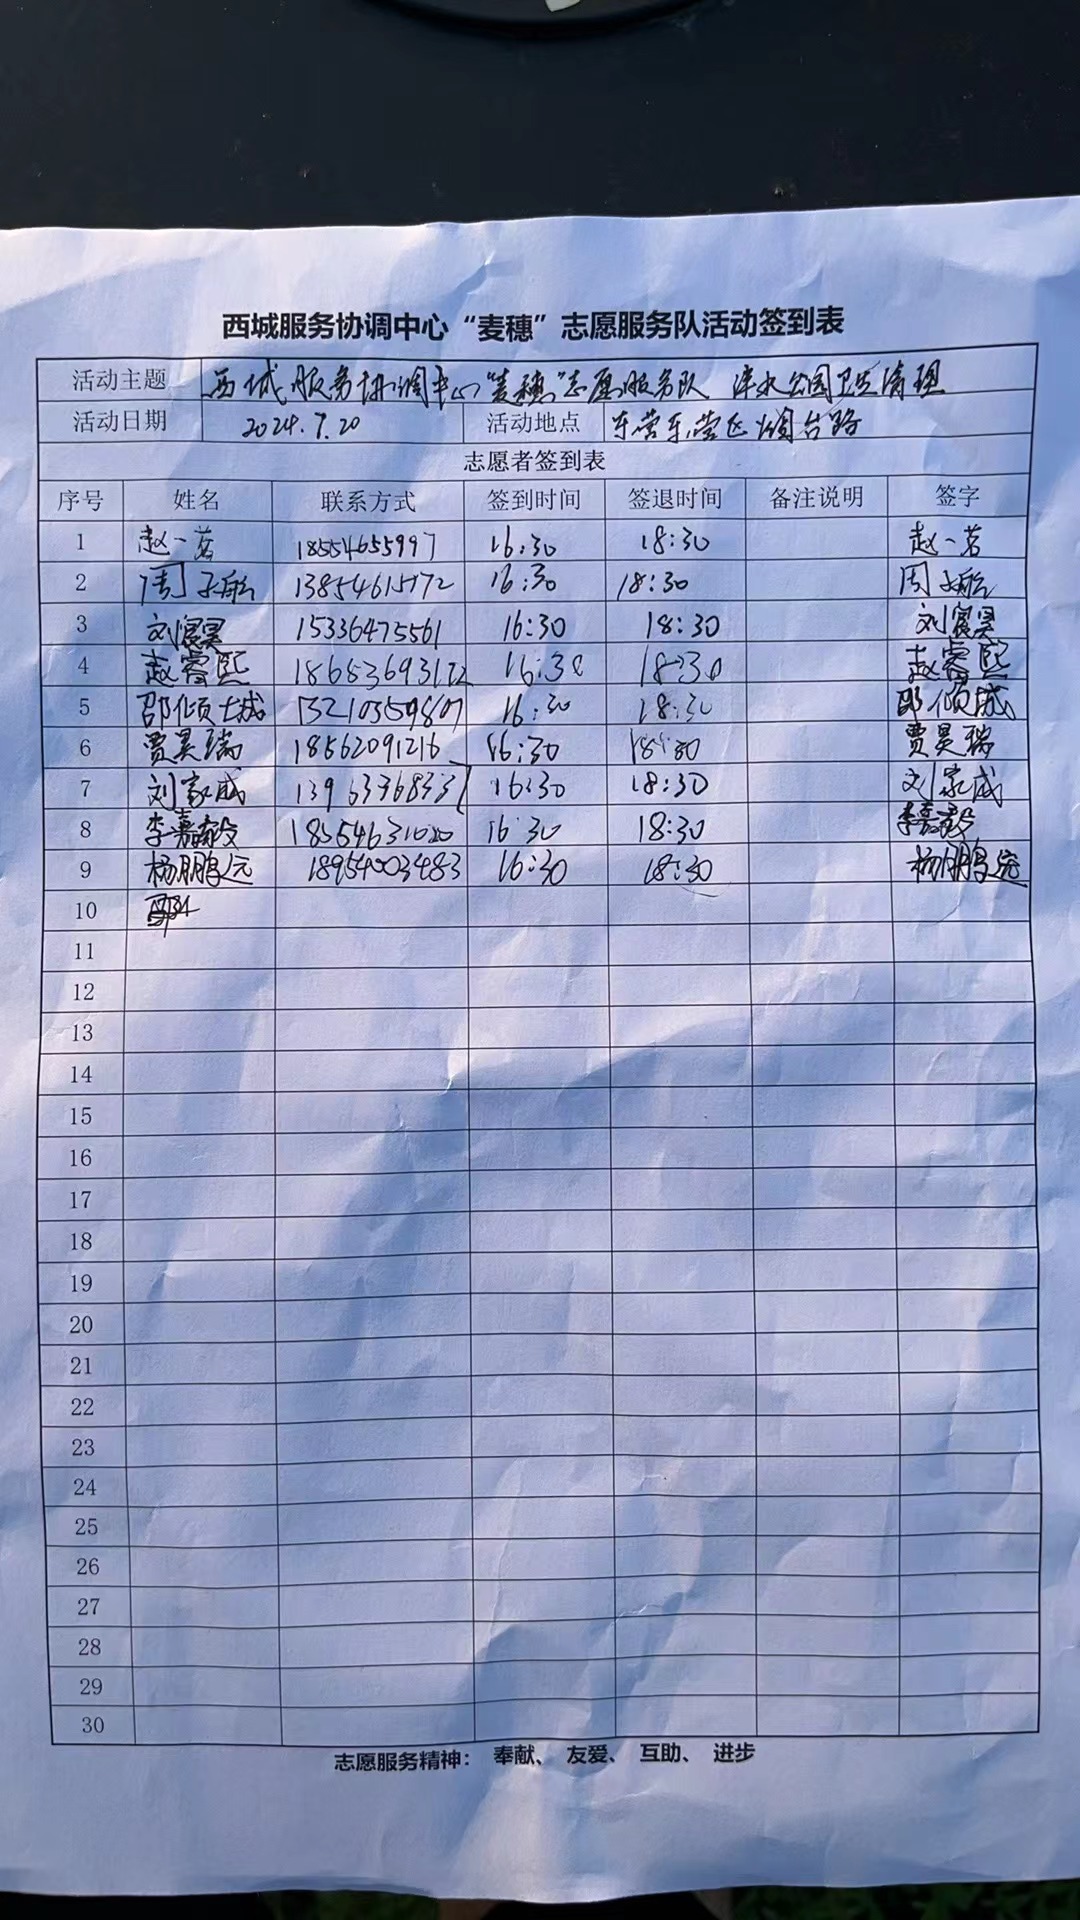 西城服务协调中心“麦穗”志愿服务队活动签到表
活动主题 西城服务协调中心“麦穗”志愿服务队 洋水公园卫生清理
活动日期 2024.7.20 活动地点 东营东营区烟台路
志愿者签到表
序号 姓名 联系方式 签到时间 签退时间 备注说明 签字
1 赵一茗 18554655997 16:30 18:30 赵一茗
2 周子航 13854615172 16:30 18:30 周子航
3 刘宸昊 15336475561 16:30 18:30 刘宸昊
4 赵睿熙 18653693172 16:30 18:30 赵睿熙
5 邵倾城 16:30 18:30 邵倾城
6 贾昊瑞 18562091216 16:30 18:30 贾昊瑞
7 刘家成 16:30 18:30 刘家成
8 李嘉毅 16:30 18:30 李嘉毅
9 杨鹏远 18954003483 16:30 18:30 杨鹏远
10
11
12
13
14
15
16
17
18
19
20
21
22
23
24
25
26
27
28
29
30
志愿服务精神： 奉献、 友爱、 互助、 进步